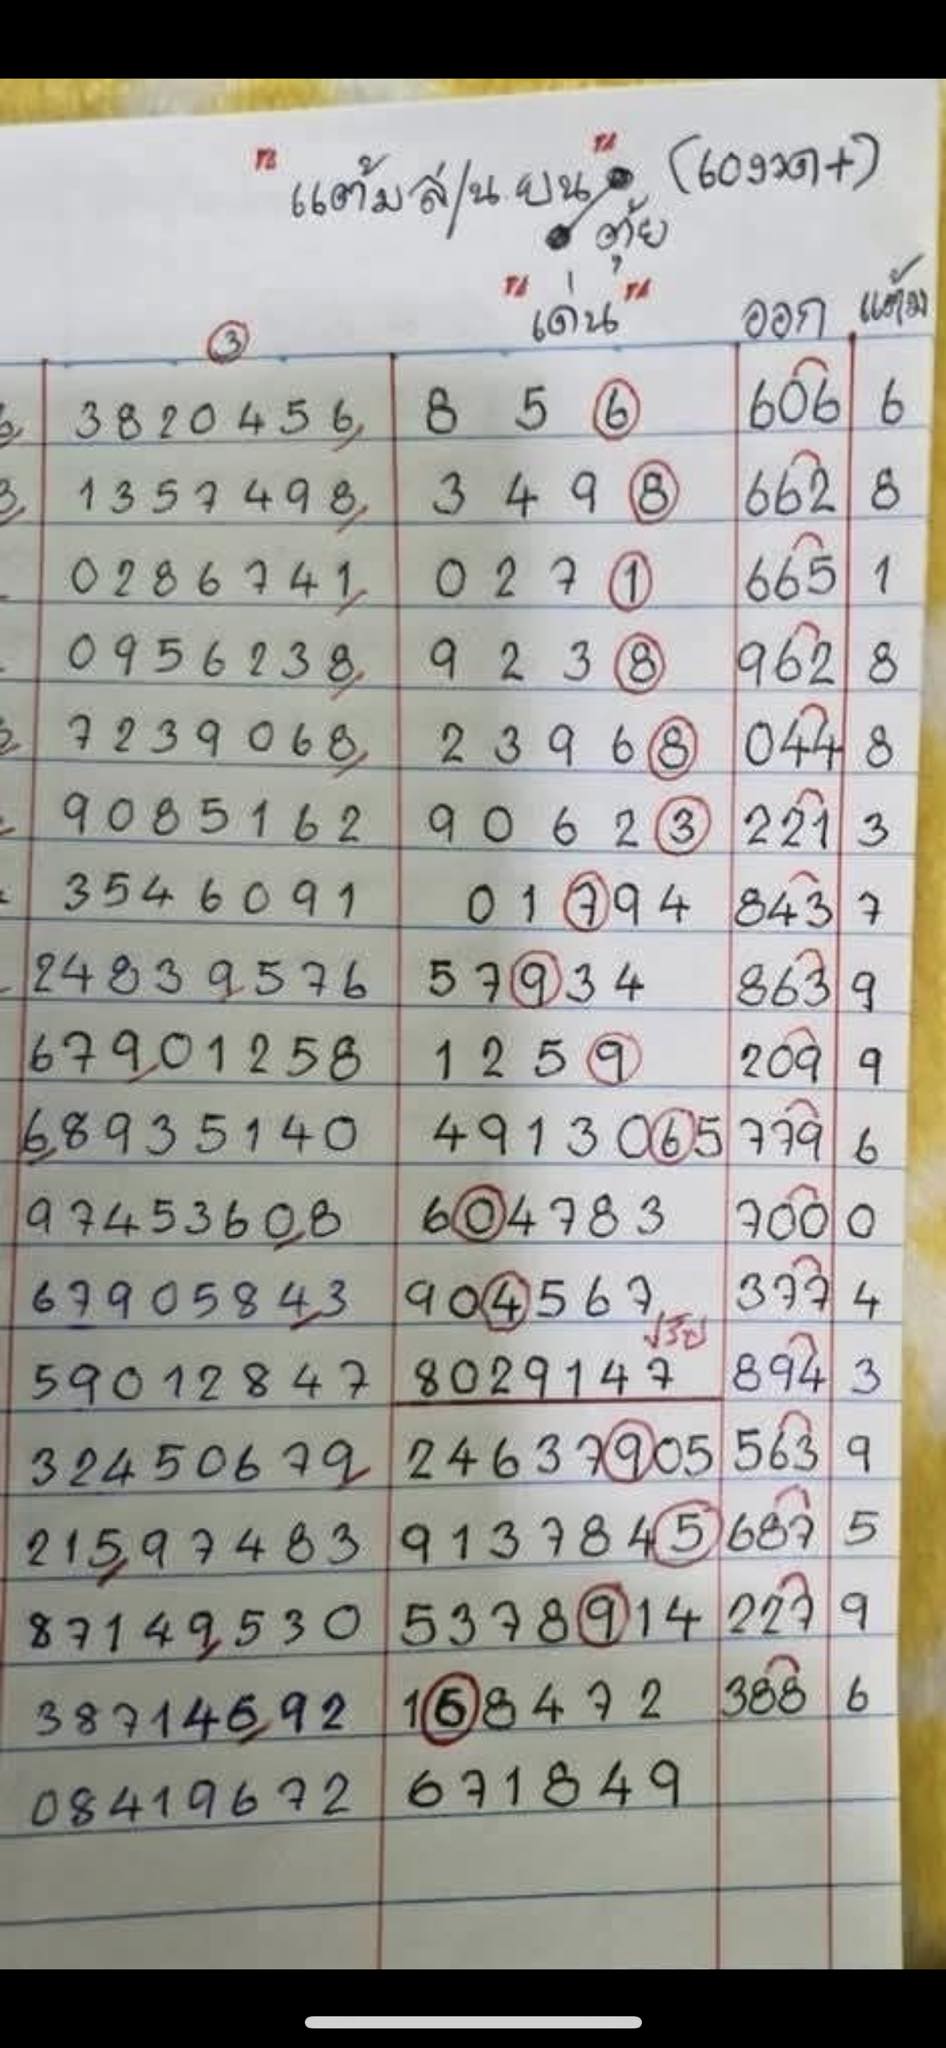 " แต้มล่/น.ยน " (60งวด+)
ตุ้ย
③ " เด่น " ออก แต้ม
3820456 8 5 6 606 6
1357498 3 4 9 8 662 8
0286741 0 2 7 1 665 1
0956238 9 2 3 8 962 8
7239068 2 3 9 6 8 044 8
9085162 9 0 6 2 3 221 3
3546091 0 1 7 9 4 843 7
24839576 5 7 9 3 4 863 9
67901258 1 2 5 9 209 9
68935140 4913065 779 6
97453608 604783 700 0
67905843 904567 377 4
ปรับ
59012847 8029147 894 3
32450679 24637905 563 9
21597483 9137845 687 5
87149530 5378914 227 9
38714692 168472 388 6
08419672 671849